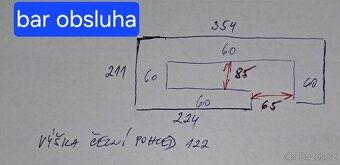 bar obsluha
354
60
211
60
85
60
60
65
224
VÝŠKA ČELNÍ POHLED 122
Bazoš.cz